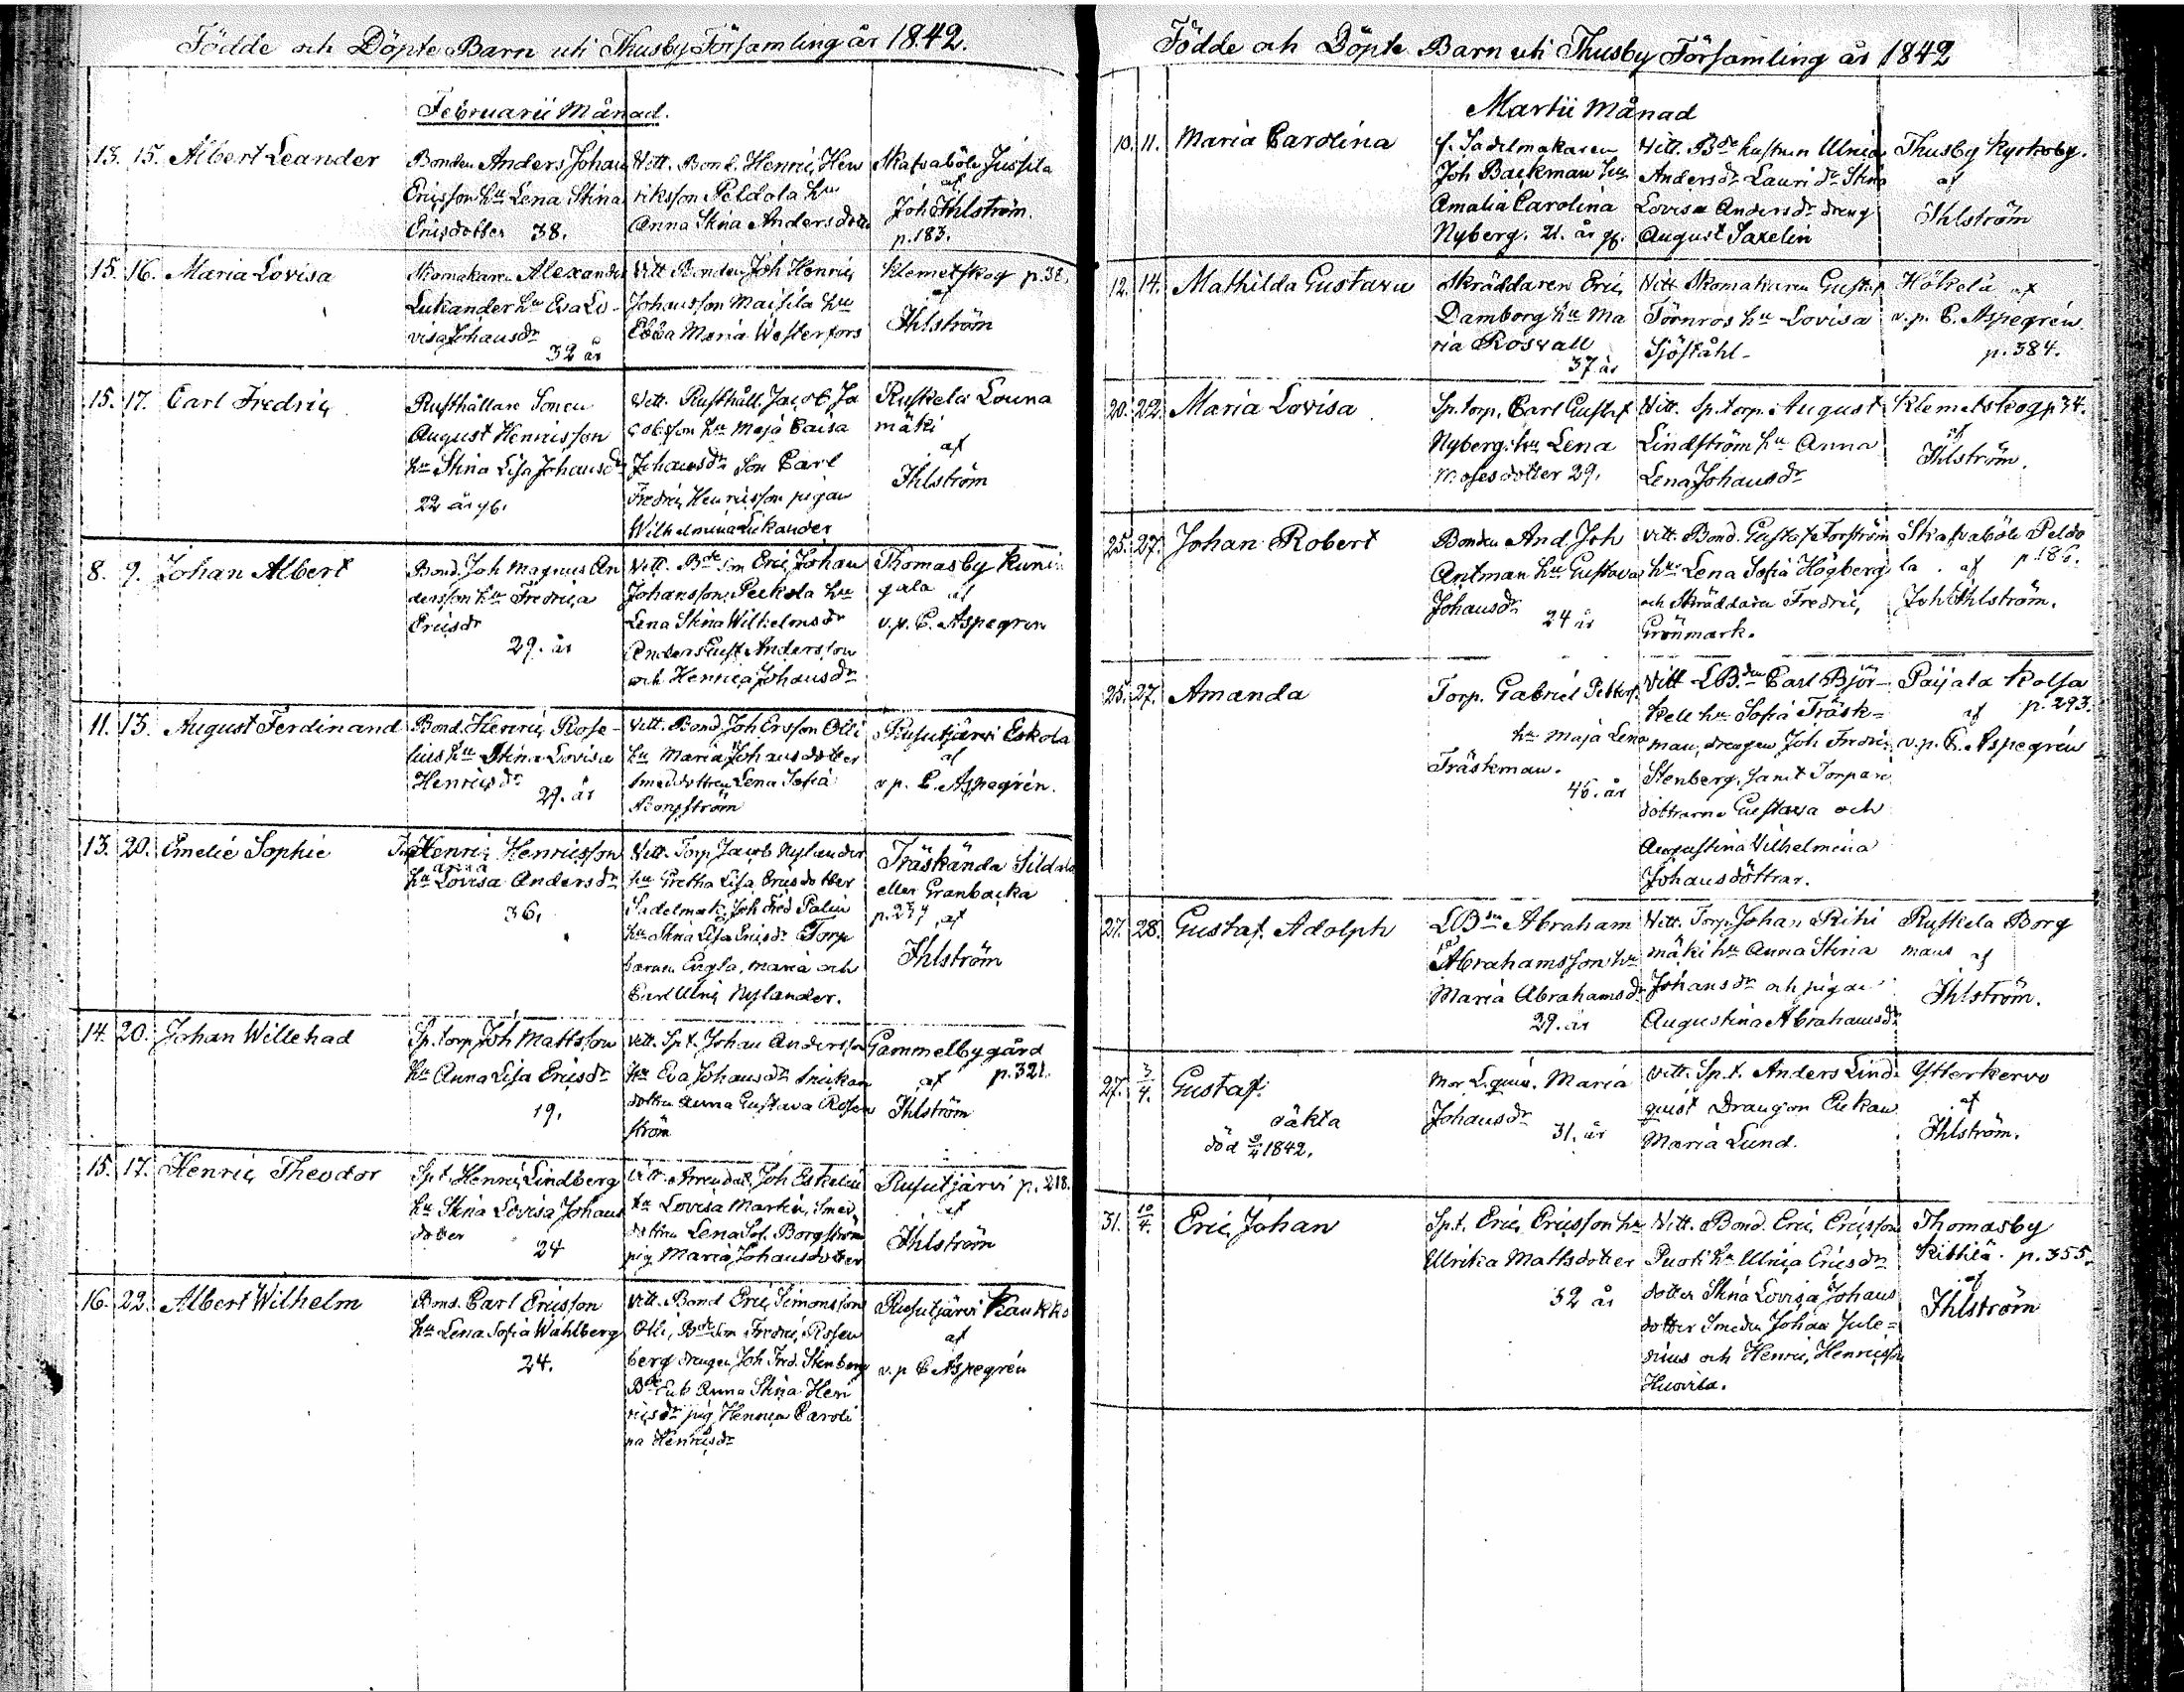 Födde och Döpte Barn uti Thusby Församling år 1842.
Februarii Månad.
13. 15. Albert Leander
Bonden Anders Johan
Ericsson hu Lena Stina
Ericsdotter 38.
Vitt. Bond. Henric Hen
riksson Peldola hu
Anna Stina Andersdotter
Skafvaböle Jussila
af
Joh Ihlström.
p.183.
15. 16. Maria Lovisa
Skomakaren Alexander
Lukander hu Eva Lo-
visa Johansdr
32 år
Vitt Bonden Joh Henric
Johansson Maisila hu
Ebba Maria Westerfors
Klemetskog p.38.
af
Ihlström
15. 17. Carl Fredric
Rusthållare Sonen
August Henricsson
hu Stina Lisa Johansdr
22 år
Vitt. Rusthåll. Jacob Ja
cobsson hu Maja Caisa
Johansdr Son Carl
Fredric Henricsson pigan
Wilhelmina Lukander
Ruskela Louna
mäki
af
Ihlström
8. 9. Johan Albert
Bond. Joh Magnus An
dersson hu Fredrica
Ericsdr
29. år
Vitt. Bde Son Eric Johan
Johansson Peckola hu
Lena Stina Wilhelmsdr
Anders Gust Andersson
och Henrica Johansdr
Thomasby Kunin
gala af
v.p. C. Aspegren
11. 13. August Ferdinand
Bond. Henric Rose-
lius hu Stina Lovisa
Henricsdr
29. år
Vitt. Bond Joh Ersson Olli
hu Maria Johansdotter
Smeddottren Lena Sofia
Borgström
Rusutjärvi Eskola
af
v.p. C. Aspegrén.
13. 20. Emelie Sophie
Henric Henricsson
Anna
hu Lovisa Andersdr
36.
Vitt. Torp Jacob Nylander
hu Gretha Lisa Ericsdotter
Sadelmak. Joh Fred Palin
hu Stina Lisa Ericsdr Torp
baren Engla, Maria och
Carl Ulric Nylander.
Träskända Sildala
eller Granbacka
p.234 af
Ihlström
14. 20. Johan Willehad
Sp. torp Joh Mattsson
hu Anna Lisa Ericsdr
19.
Vitt. Sp t. Johan Andersson
hu Eva Johansdr Snickar
dottren Anna Gustava Rosen
ström
Gammelby gård
af p.321.
Ihlström
15. 17. Henric Theodor
Sp t Henric Lindberg
hu Stina Lovisa Johans
dotter 24
Vitt. Arrendat. Joh Eskelin
hu Lovisa Martin, Smed
dottren Lena Sof. Borgström
pig Maria Johansdotter
Rusutjärvi p.218.
af
Ihlström
16. 22. Albert Wilhelm
Bond. Carl Ericsson
hu Lena Sofia Wahlberg
24.
Vitt. Bond Eric Simonsson
Olli, Bde Son Fredric Rosen
berg drengen Joh Fred. Stenberg
Bde Anna Stina Hen
ricsdr pig Henrica Caroli
na Henricsdr
Rusutjärvi Kaukko
af
v.p C Aspegrén
Födde och Döpte Barn uti Thusby Församling år 1842
Martii Månad
10. 11. Maria Carolina
f. Sadelmakaren
Joh Backman hu
Amalia Carolina
Nyberg. 21. år
Vitt. Bde hustrun Ulrica
Andersdr Lauri dr Stina
Lovisa Andersdr dreng
August Saxelin
Thusby Kyrkoby.
af
Ihlström
12. 14. Mathilda Gustava
Skräddaren Eric
Damborg hu Ma
ria Rosvall
37 år
Vitt Skomakaren Gustaf
Törnros hu Lovisa
Sjöståhl-
Hökelä af
v.p. C. Aspegrén
p.384.
20. 22. Maria Lovisa
Sp. torp. Carl Gustaf
Nyberg. hu Lena
Mosesdotter 29.
Vitt. Sp. torp. August
Lindström hu Anna
Lena Johansdr
Klemetskog p 34.
af
Ihlström.
25. 27. Johan Robert
Bonden And. Joh
Antman hu Gustava
Johansdr 24 år
Vitt. Bond. Gustaf Forström
hu Lena Sofia Högberg
och Skräddaren Fredric
Grönmark.
Skafvaböle Peldo
la. af p.186.
Joh Ihlström.
25. 27. Amanda
Torp. Gabriel Petters.
hu Maja Lena
Träskman.
46. år
Vitt LBden Carl Björ-
kell hu Sofia Träsk=
man, drengen Joh Fredric
Stenberg, samt Torpare
döttrarne Gustava och
Augustina Wilhelmina
Johansdöttrar.
Paijala Kolsa
af p.293.
v.p. C. Aspegrén
27. 28. Gustaf Adolph
LBden Abraham
Abrahamsson hu
Maria Abrahamsdr
29. år
Vitt. Torp. Johan Rihi
mäki hu Anna Stina
Johansdr och pigan
Augustina Abrahamsdr
Ruskela Borg
mans af
Ihlström.
27. 3/4. Gustaf
oäkta
död 9/4 1842.
Mor Lqvin. Maria
Johansdr
31. år
Vitt. Sp. t. Anders Lind
quist Dragon Enkan
Maria Lund.
Ytterkervo
af
Ihlström.
31. 10/4. Eric Johan
Sp. t. Eric Ericsson hu
Ulrika Mattsdotter
32 år
Vitt. Bond. Eric Ericsson
Puoti hu Ulrica Ericsdr
dotter Stina Lovisa Johans
dotter Smeden Johan Jule=
nius och Henric Henricsson
Huovila.
Thomasby
Kithilä. p.355.
af
Ihlström